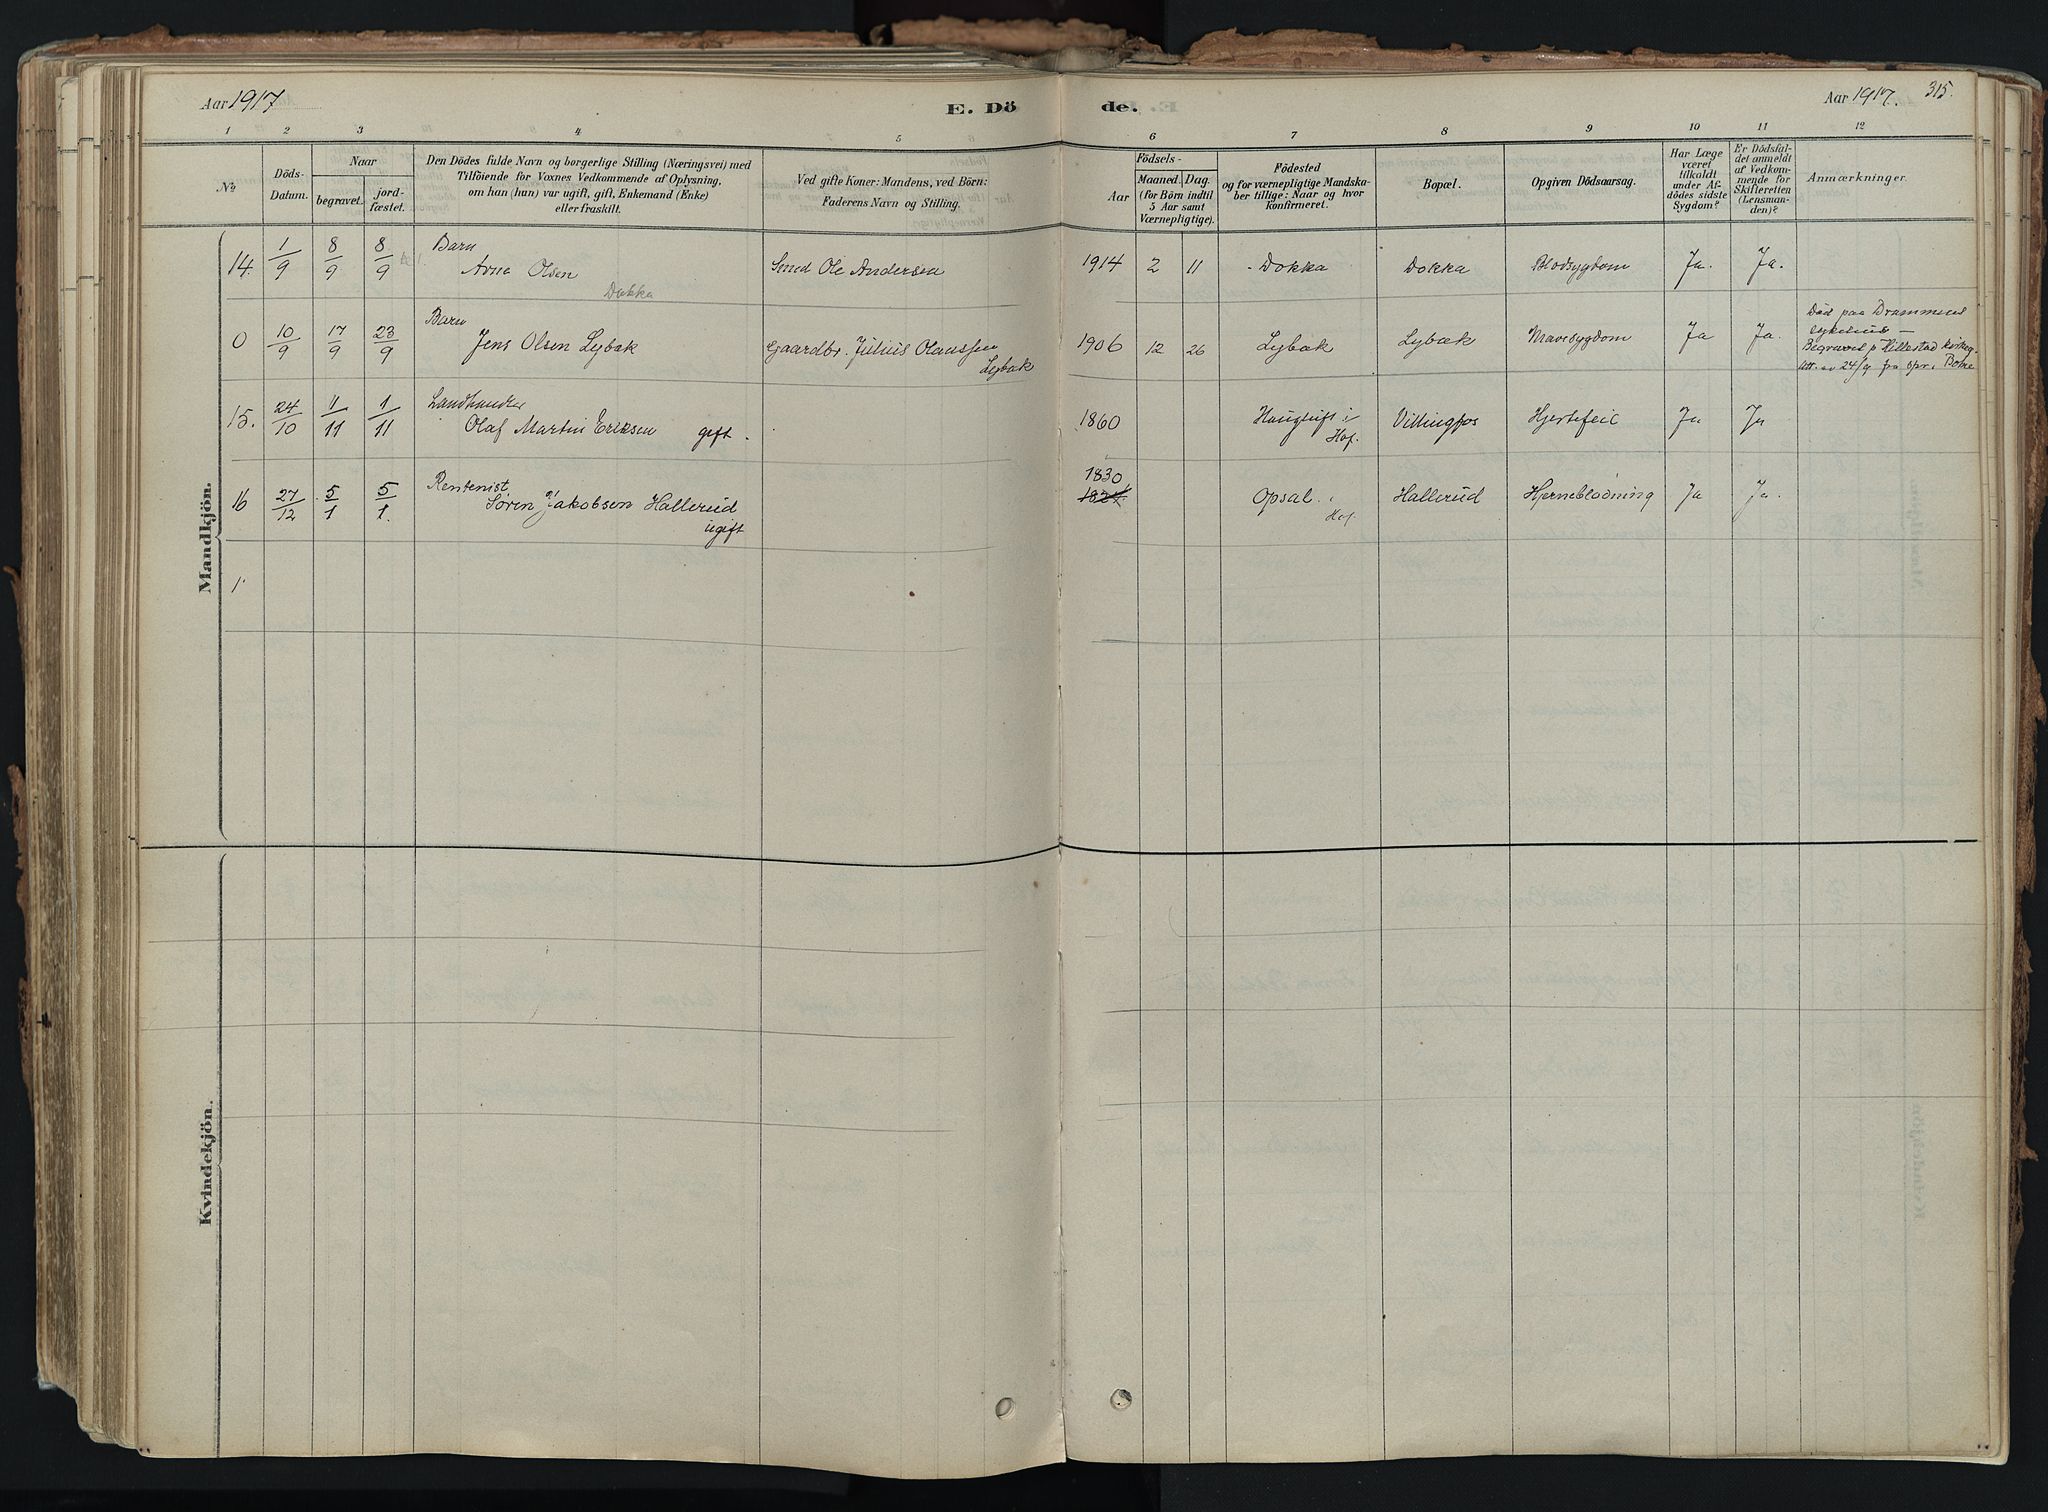 Aar 1917
E. Dö
de.
Aar 1917.
315.
1 2 3 4 5 6 7 8 9 10 11 12
No
Döds-
Datum.
Naar
begravet.
jord-
fæstet.
Den Dödes fulde Navn og borgerlige Stilling (Næringsvei) med
Tilföiende for Voxnes Vedkommende af Oplysning,
om han (hun) var ugift, gift, Enkemand (Enke)
eller fraskilt.
Ved gifte Koner: Mandens, ved Börn:
Faderens Navn og Stilling.
Födsels-
Aar
Maaned. Dag.
(for Börn indtil
5 Aar samt
Værnepligtige).
Födested
og for værnepligtige Mandska-
ber tillige: Naar og hvor
konfirmeret.
Bopæl.
Opgiven Dödsaarsag.
Har Læge
været
tilkaldt
under Af-
dödes sidste
Sygdom?
Er Dödsfal-
det anmeldt
af Vedkom-
mende for
Skifteretten
(Lensman-
den)?
Anmærkninger.
Mandkjön.
14. 1/9 8/9 8/9
Barn
Arne Olsen
Dokka
Smed Ole Andersen
1914 2 11 Dokka Dokka Blodsygdom Ja. Ja.
0 10/9 17/9 23/9
Barn
Jens Olsen Lybæk
Gaardbr. Julius Olaussen
Lybæk
1906 12 26 Lybæk Lybæk Mavesygdom Ja Ja.
Död paa Drammens
sykehus —
Begravet p Hillestad kirkeg.
Att. av 24/9 fra spr. i Botne
15. 24/10 1/11 1/11
Landhandler
Olaf Martin Eriksen gift.
1860 i
Hof. Villingfos Hjertefeil Ja Ja
16 27/12 5/1 5/1.
Rentenist
Søren Jakobsen Hallerud
ugift
1830
1824
Opsal i
Hof. Hallerud Hjerneblødning Ja Ja.
1
Kvindekjön.